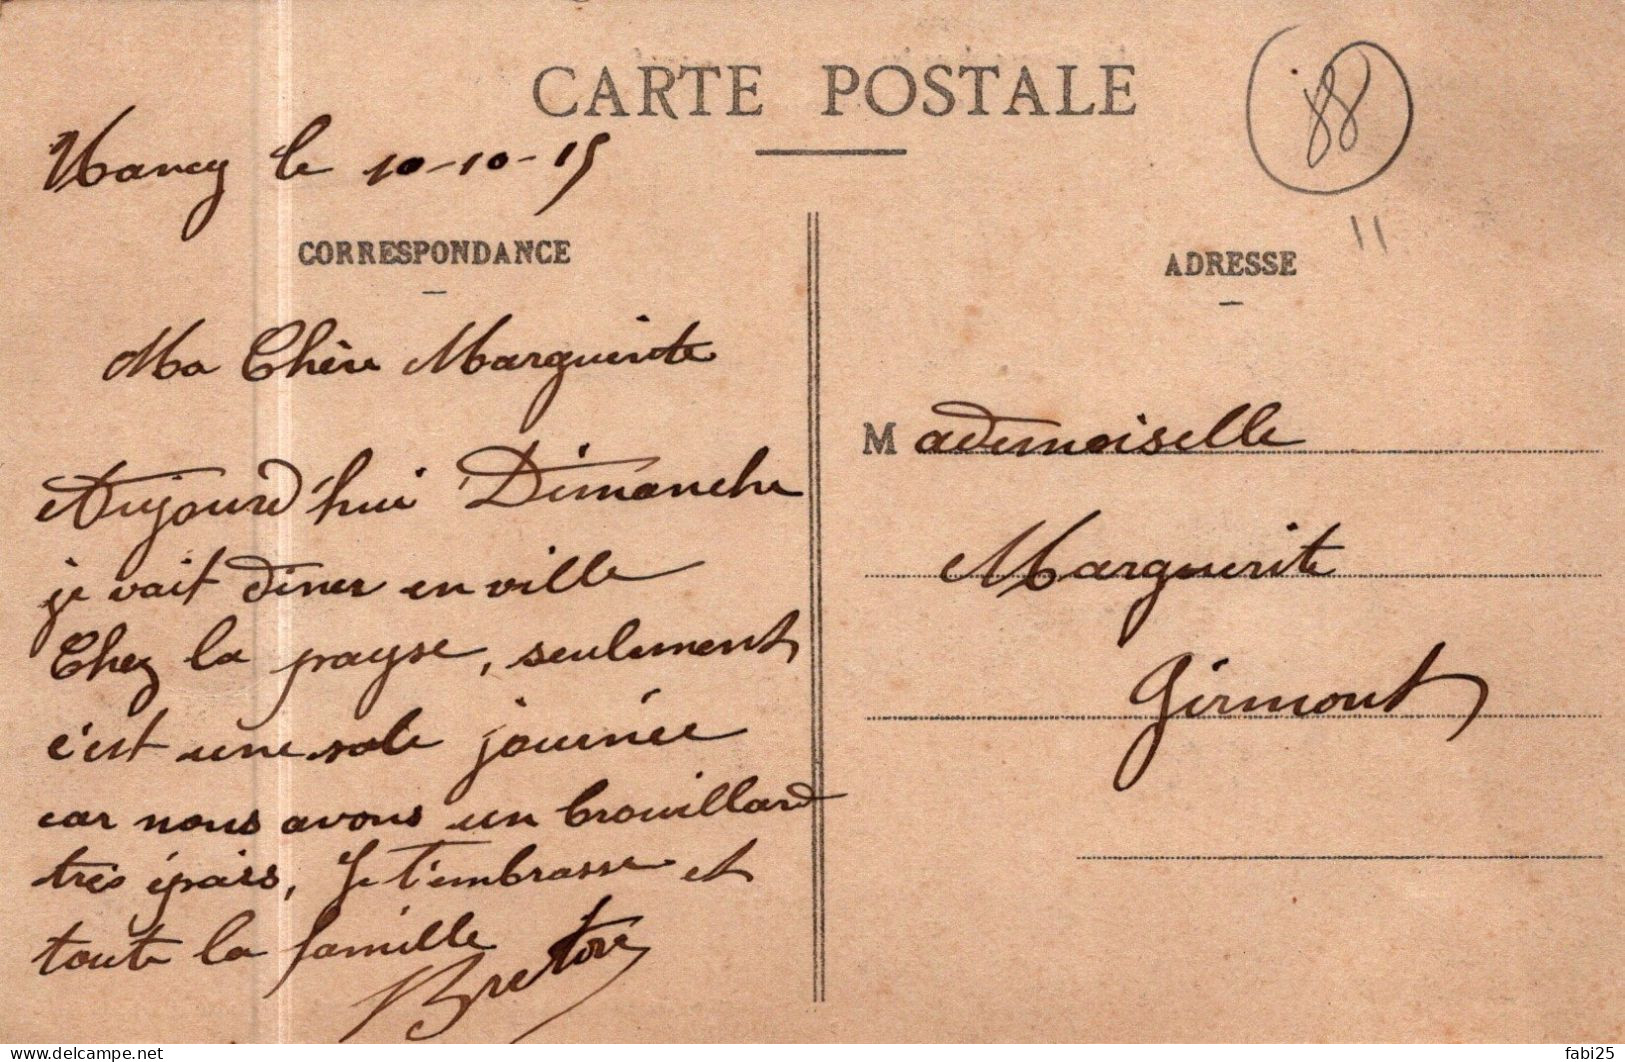 CARTE POSTALE
88
11
Nancy le 10-10-15
CORRESPONDANCE
Ma Chère Marguerite
Aujourd'hui Dimanche
je vait diner en ville
Chez la payse, seulement
c'est une sale journée
car nous avons un brouillard
très épais, Je t'embrasse et
toute la famille
ADRESSE
Mademoiselle
Marguerite
Girmont
fabi25